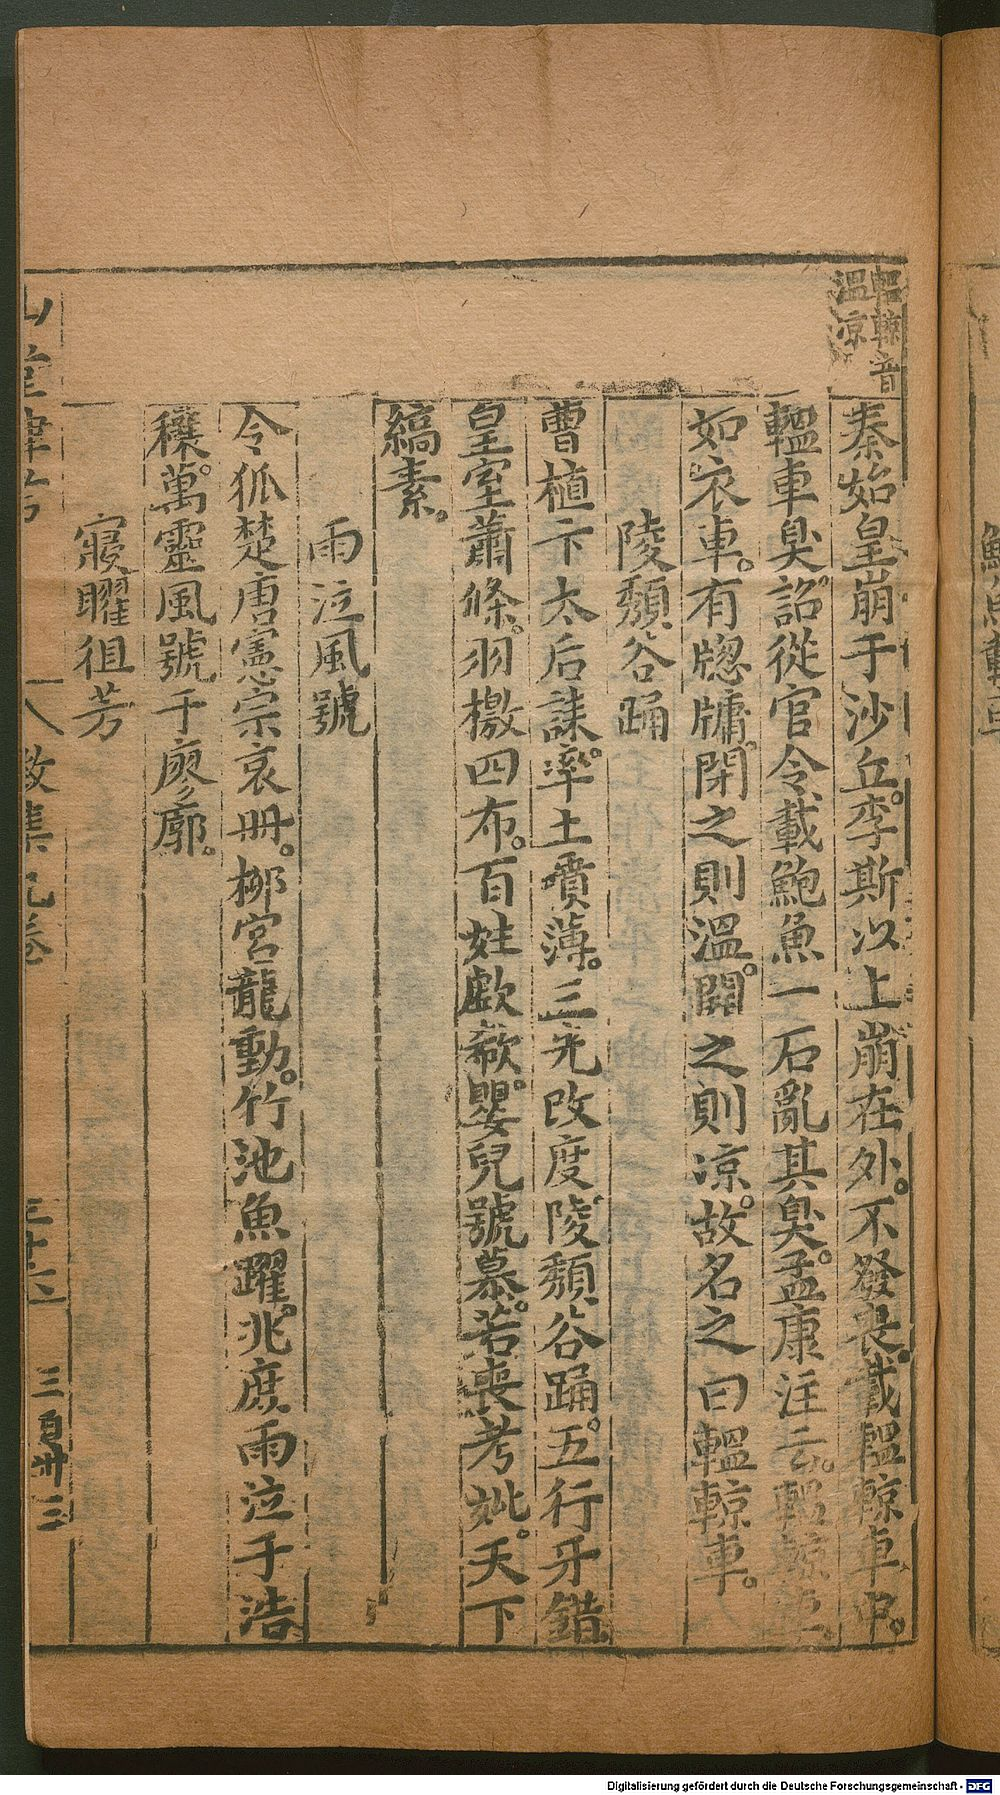 轀輬音
溫凉
秦始皇崩于沙丘。李斯以上崩在外。不發喪。載轀輬車中。
轀車臭。詔從官令載鮑魚一石亂其臭。孟康注云。轀輬車。
如衣車。有牕牗。閉之則溫。開之則凉。故名之曰轀輬車。
陵頹谷踊
曹植卞太后誄。率土噴薄。三光改度。陵頹谷踊。五行牙錯
皇室蕭條。羽檄四布。百姓歔欷。嬰兒號慕。若喪考妣。天下
縞素。
雨泣風號
令狐楚唐憲宗哀冊。柳宮龍動。竹池魚躍。兆庶雨泣于浩
穰。萬靈風號于廖廓。
寢曜徂芳
山堂肆考
八 徵集 九卷
三十六
三百卅三
Digitalisierung gefördert durch die Deutsche Forschungsgemeinschaft - DFG